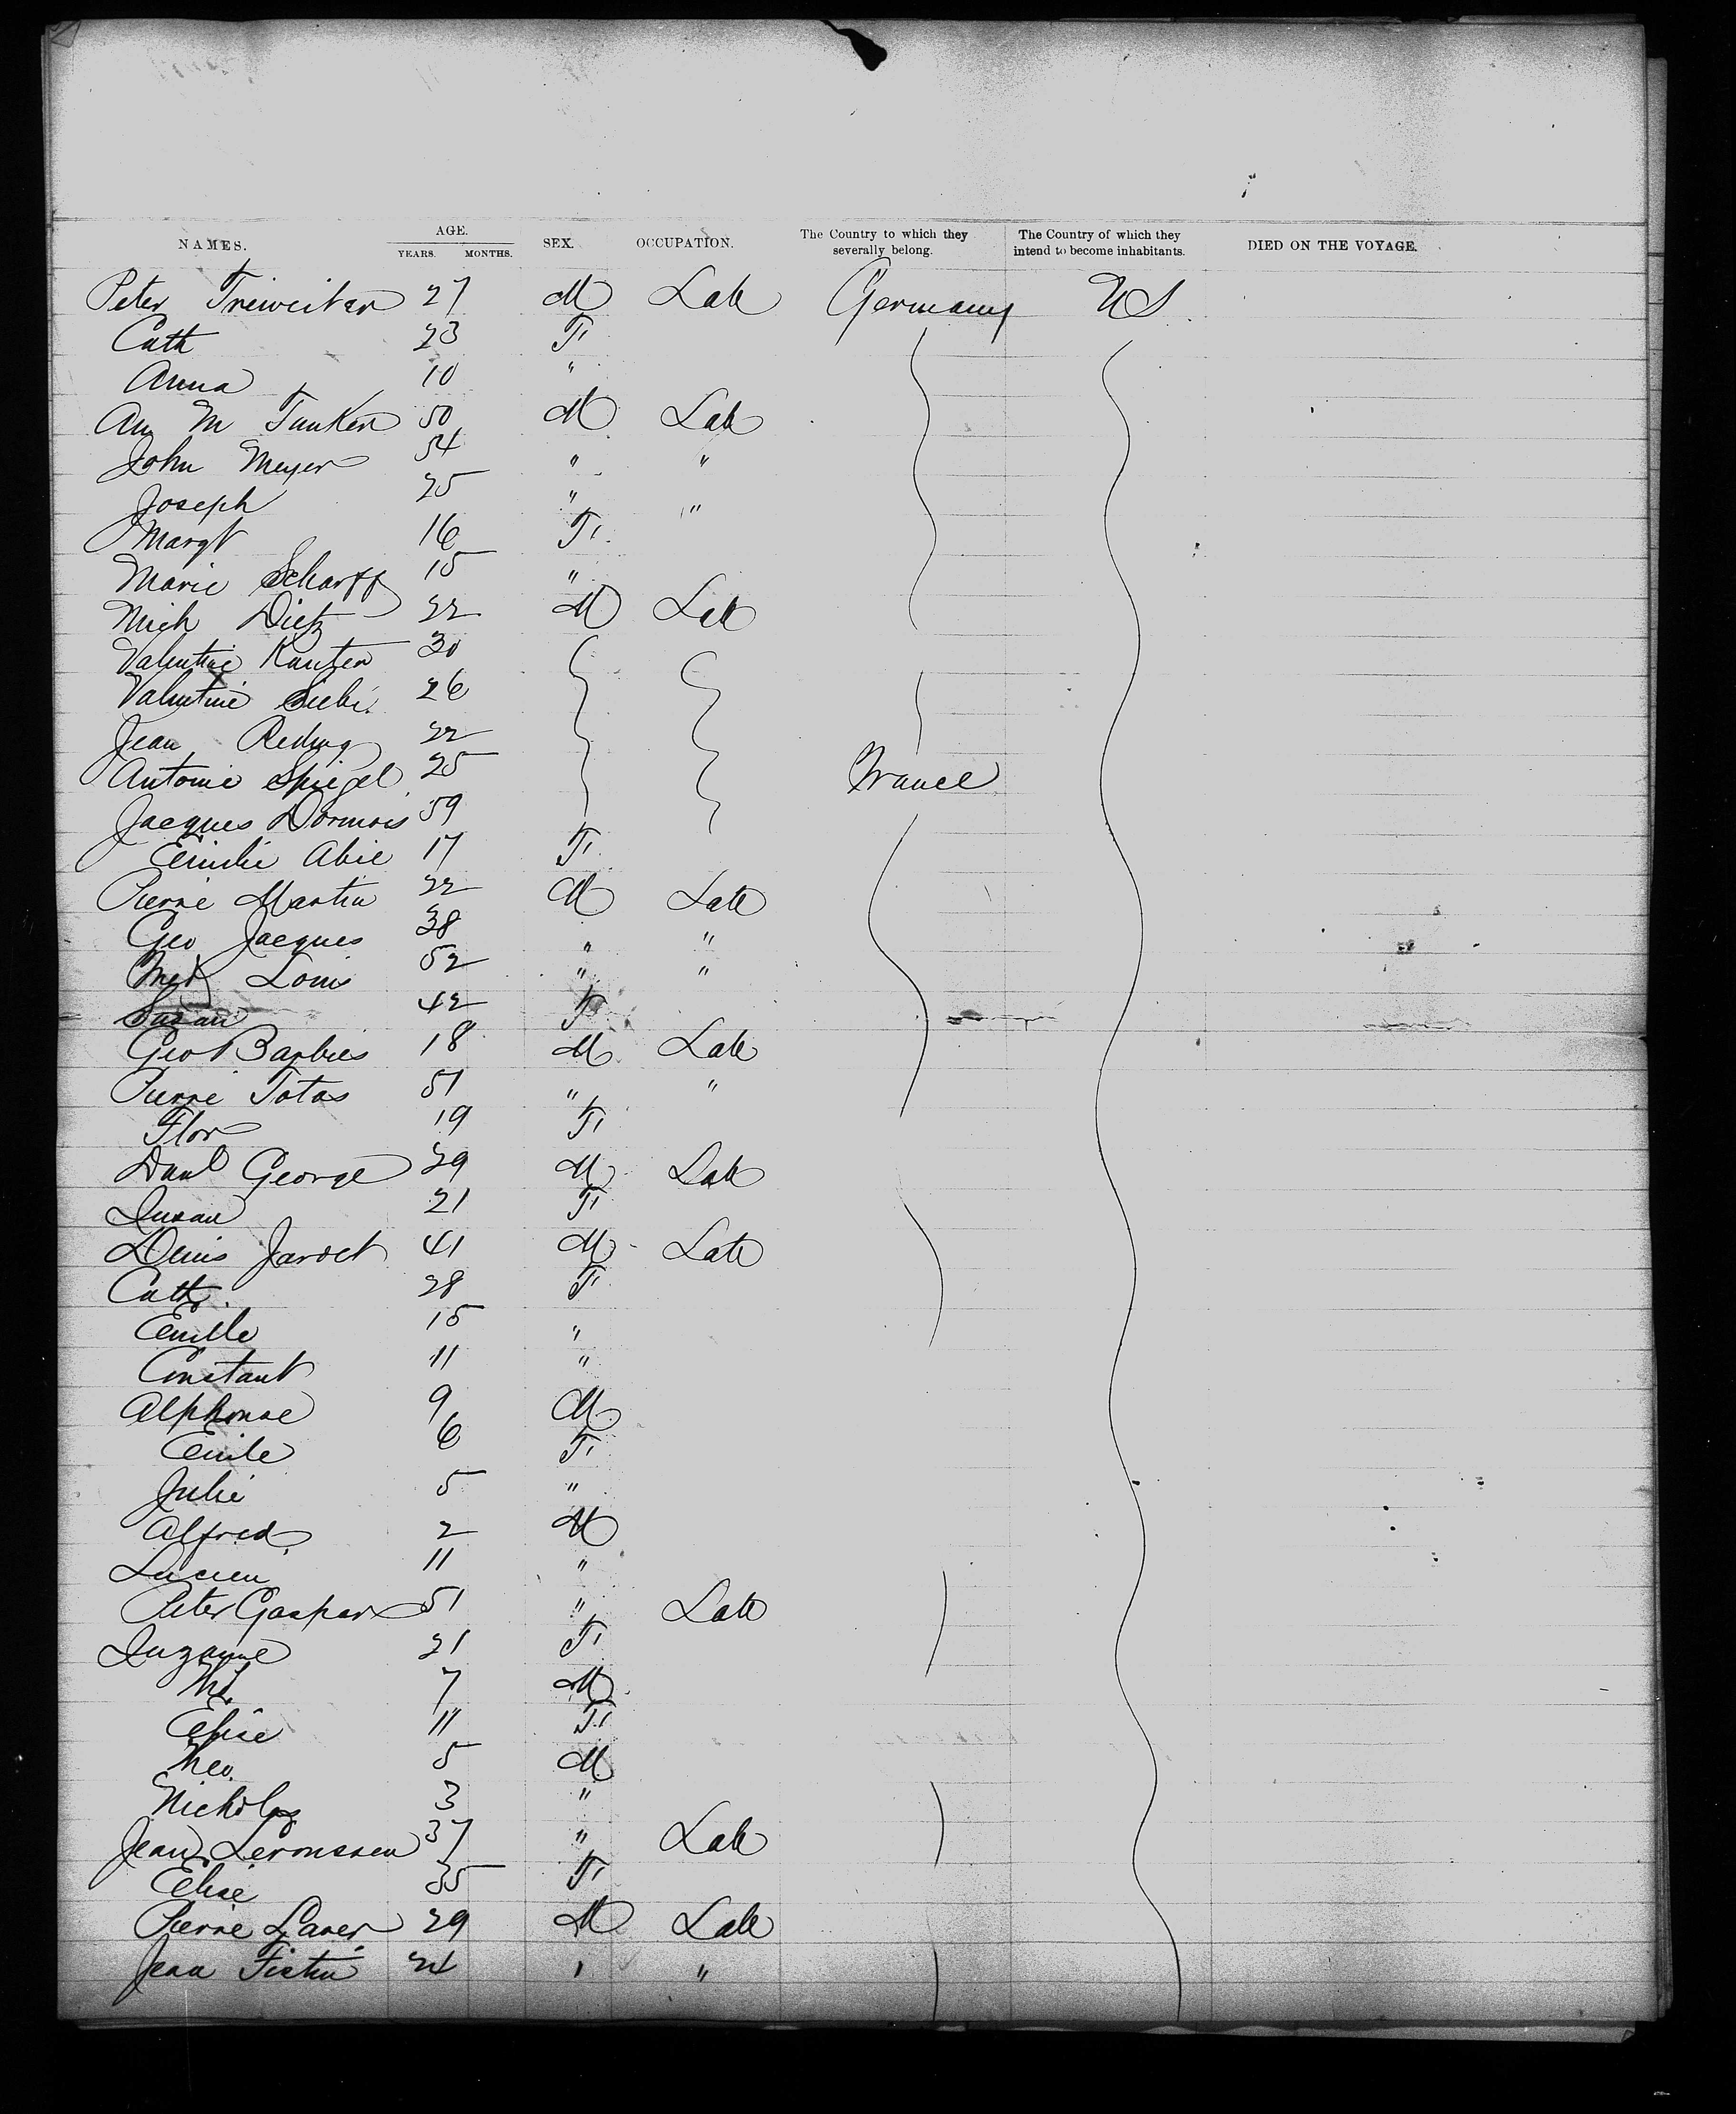 NAMES. AGE. YEARS. MONTHS. SEX. OCCUPATION. The Country to which they severally belong. The Country of which they intend to become inhabitants. DIED ON THE VOYAGE.
Peter 27 M Lab Germany US
Cath 23 F
Anna 10 "
M Tunken 50 M Lab
John Meyer 54 " "
Joseph 25 " "
Margt 16 F
Marie Scharff 15 "
Mich Dietz 22 M Lab
Valentine Kanten 30
Valentine 26
Jean Reding 22
Antonie Spiegel 25 France
Jacques Dormois 59
Abie 17 F
Pierre Martin 22 M Lab
Geo Jacques 38 " "
Louis 52 " "
Susan 42 F
Geo Barbies 18 M Lab
Pierre Totas 51 " "
Flor 19 F
Danl George 29 M Lab
Susan 21 F
Denis Jardet 41 M Lab
Cath. 28 F
Emille 15 "
Constant 11 "
Alphonse 9 M
Emile 6 F
Julie 5 "
Alfred 2 M
Lucien 11 "
Peter Gaspar 51 " Lab
Suzanne 21 F
7 M
Elise 11 F
Theo. 5 M
Nicholas 3 "
Jean 37 " Lab
Elise 35 F
Pierre Laver 29 M Lab
Jean 24 " "